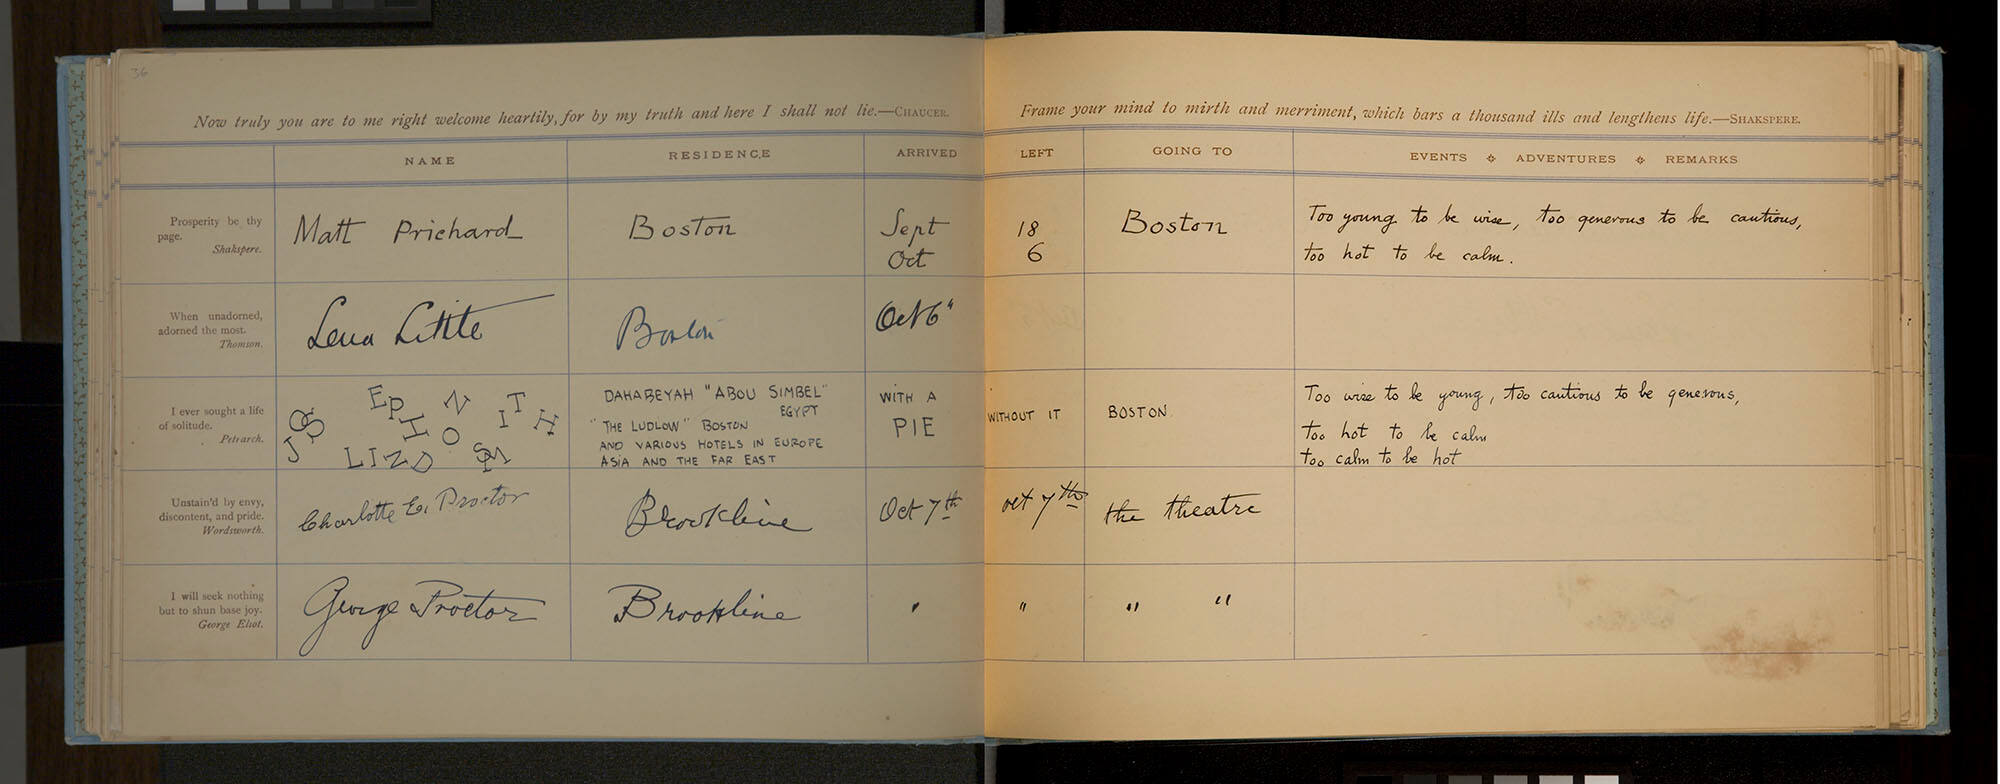 36
Now truly you are to me right welcome heartily, for by my truth and here I shall not lie.—CHAUCER.
Frame your mind to mirth and merriment, which bars a thousand ills and lengthens life.—SHAKSPERE.
NAME RESIDENCE ARRIVED LEFT GOING TO EVENTS ADVENTURES REMARKS
Prosperity be thy
page.
Shakspere.
Matt Prichard
Boston
Sept
Oct
18
6
Boston
Too young to be wise, too generous to be cautious,
too hot to be calm.
When unadorned,
adorned the most.
Thomson.
Lena Little
Boston
Oct 6"
I ever sought a life
of solitude.
Petrarch.
JOSEPH LINDON SMITH
DAHABEYAH "ABOU SIMBEL"
EGYPT
"THE LUDLOW" BOSTON
AND VARIOUS HOTELS IN EUROPE
ASIA AND THE FAR EAST
WITH A
PIE
WITHOUT IT
BOSTON
Too wise to be young, too cautious to be generous,
too hot to be calm
too calm to be hot
Unstain'd by envy,
discontent, and pride.
Wordsworth.
Charlotte E. Proctor
Brookline
Oct 7th
oct 7th
the theatre
I will seek nothing
but to shun base joy.
George Eliot.
George Proctor
Brookline
"
"
" "